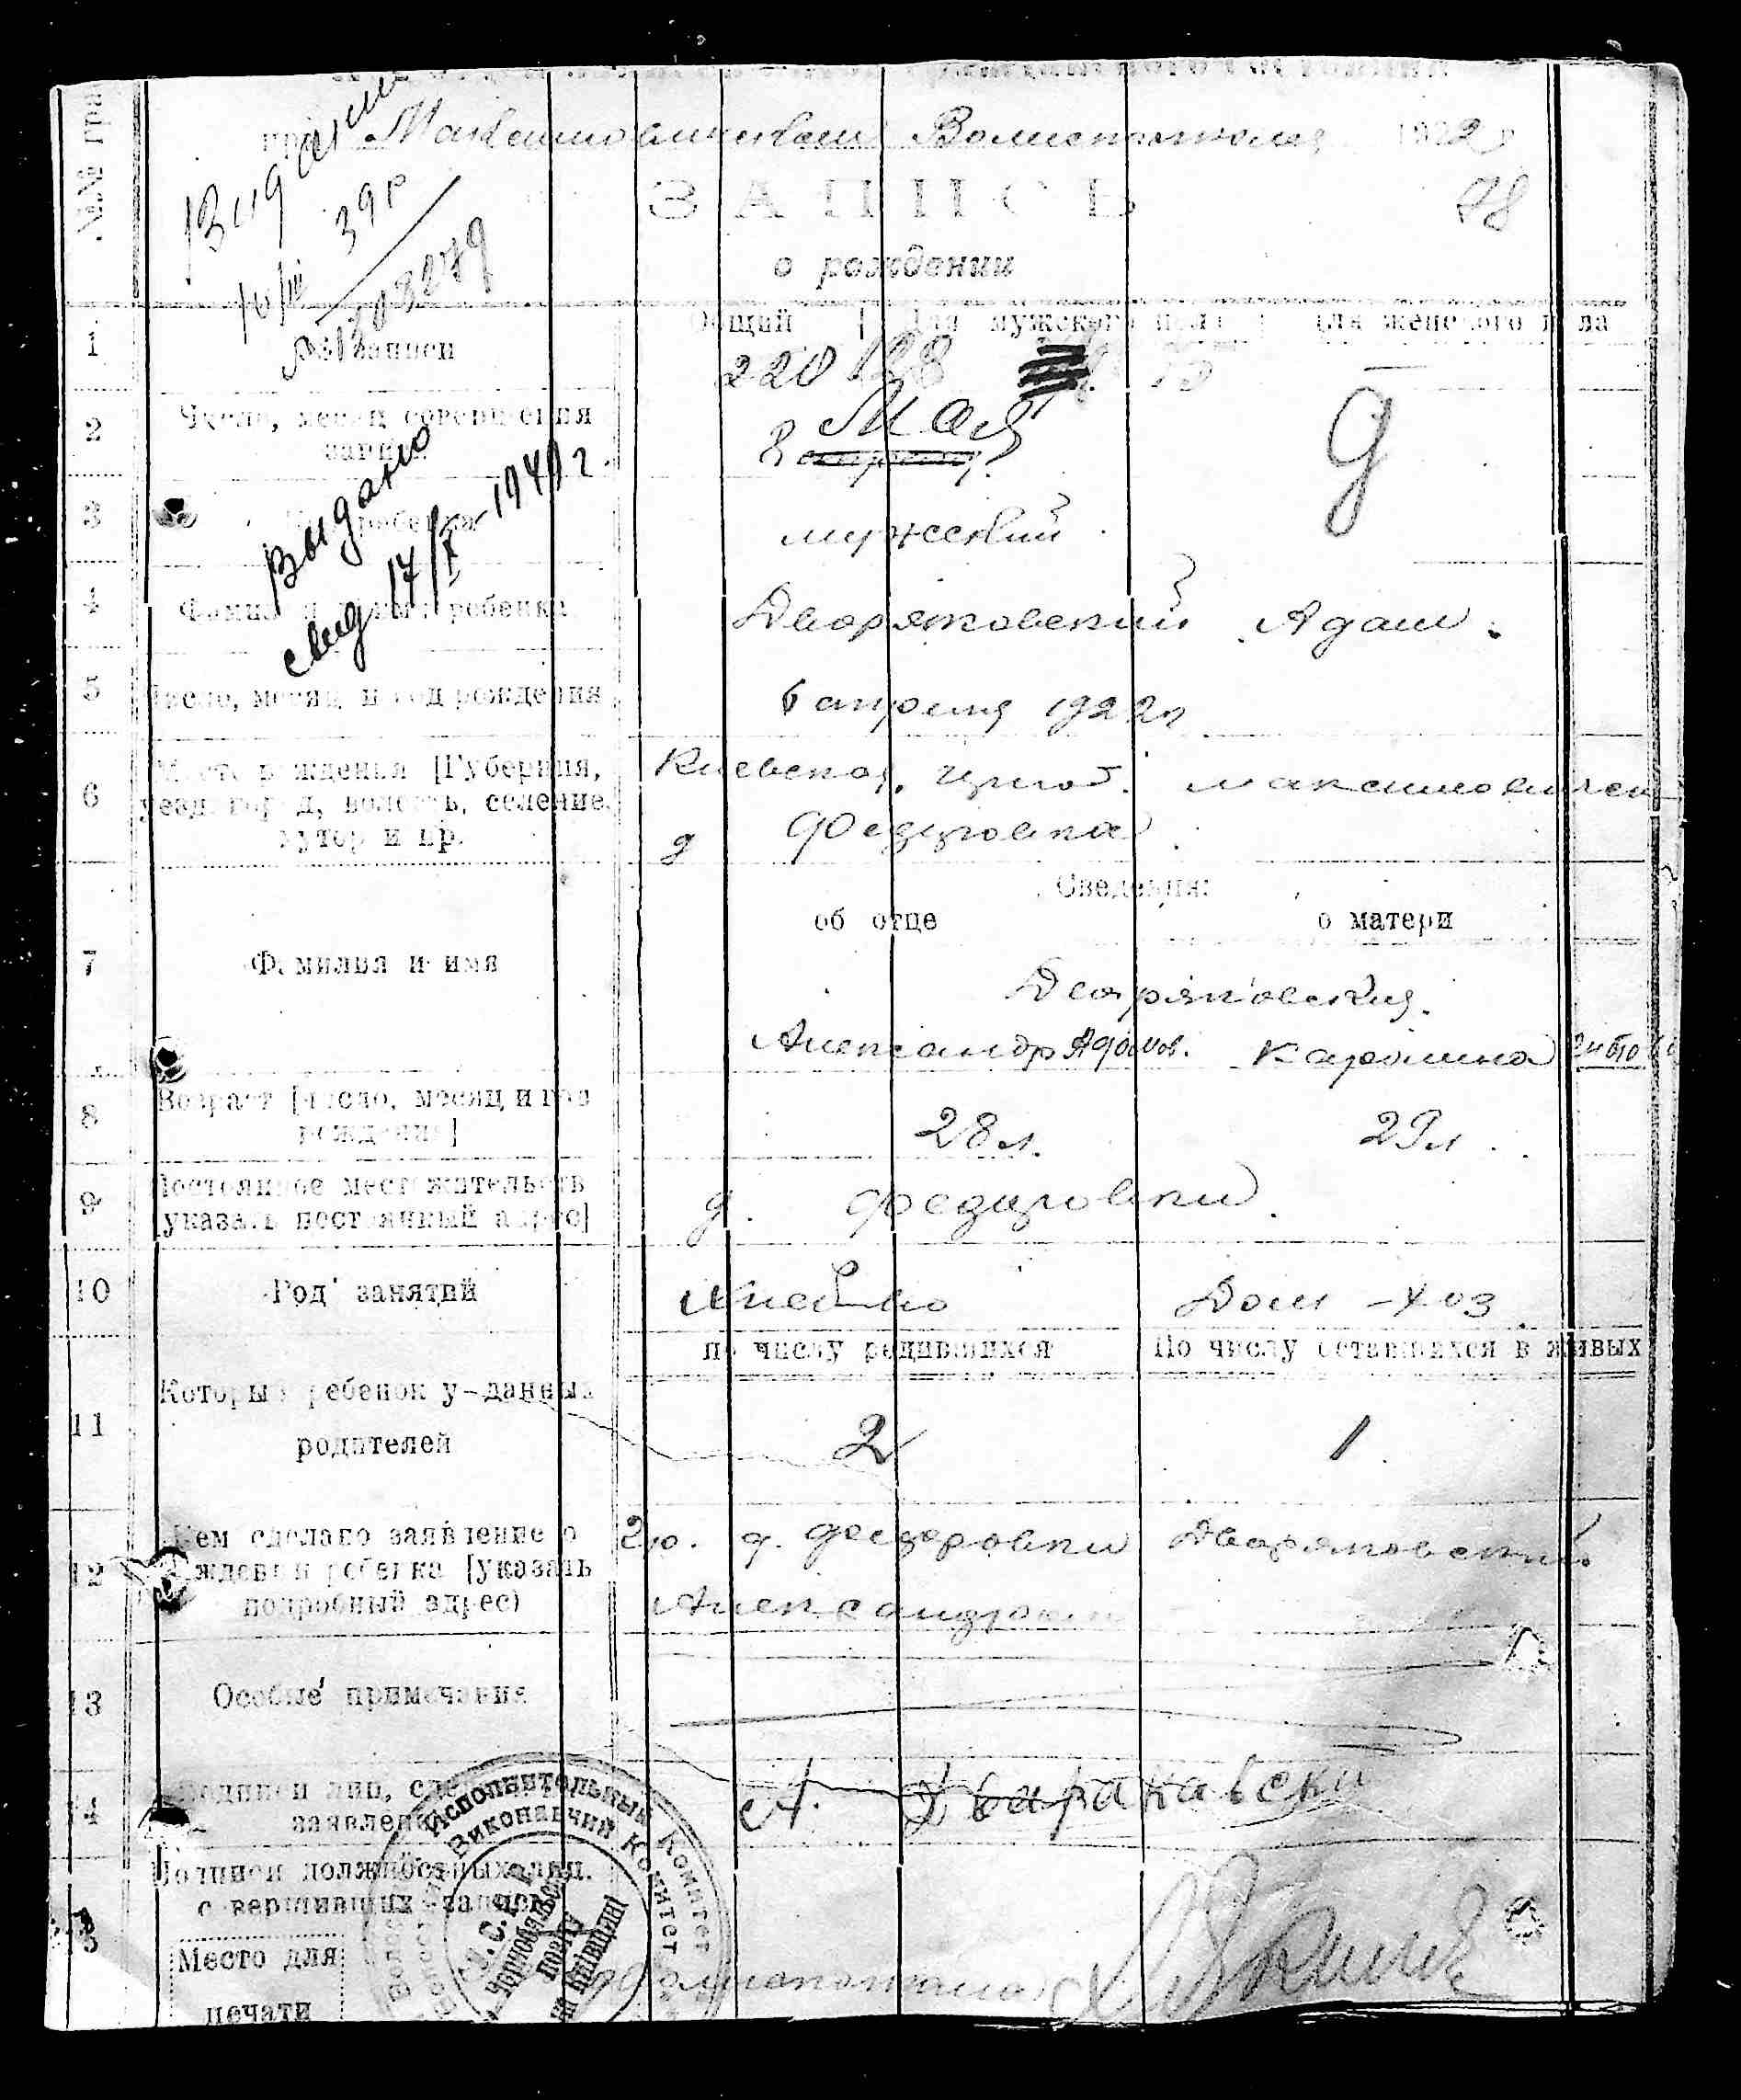 №№ гра
при Максимовичском Волисполкоме 1922 г.
ЗАПИСЬ 78
о рождении
Видани
10/III 39р
03279
Общий Для мужского пола Для женского пола
1 № записи 220 128
2 Число, месяц совершения записи
8 Мая апреля
9
3 Пол ребенка мужеский
Выдано
свид 17/X-1940 г.
4 Фамилия и имя ребенка Дворяковский Адам.
5 Число, месяц и год рождения 6 апреля 1922 г
6 Место рождения [Губерния,
уезд, город, волость, селение,
хутор и пр.
Киевской, губ. Максимовичск
д Федоровка
Сведения:
об отце о матери
7 Фамилия и имя
Дворяковския.
Александр Адамов. Каролина
8 Возраст [число, месяц и год
рождения]
28 л. 29 л.
9 Постоянное местожительств
[указать постоянный адрес]
д. Федоровки.
10 Род занятий Хлебво Дом-хоз
по числу родившихся По числу оставшихся в живых
11 Который ребенок у данных
родителей
2 1
12 Кем сделано заявление о
рождении ребенка [указать
подробный адрес)
гр. д. Федоровки Дворяковский
Александром
13 Особые примечания
14 Подписи лиц, сделавших
заявление
А. Дваракавски
15 Подписи должностных лиц,
совершивших запись
Место для
печати
Исполнительный Комитет
Виконавчий Комітет
У.С.Р.Р.
Чернобильск
повіту
на Київщині